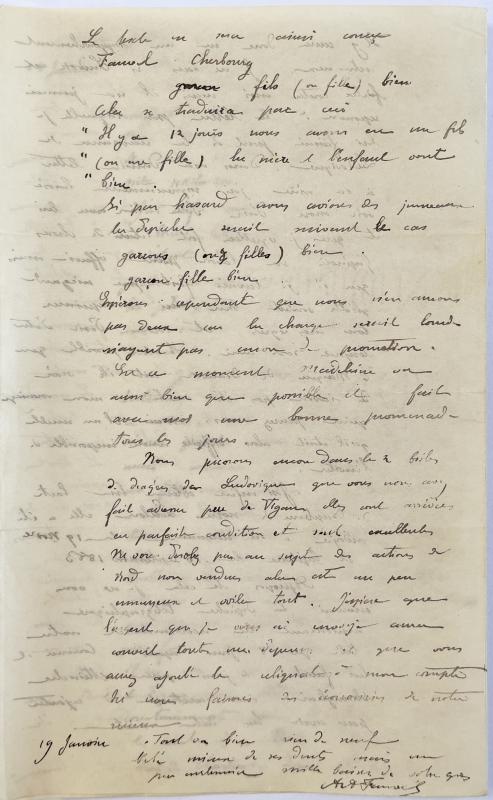 Le texte en sera ainsi conçu
Famol Cherbourg
garcon fils (ou fille) bien
Cela se traduira par ceci
" Il y a 12 jours nous avons eu un fils
" (ou une fille) la mère et l'enfant vont
" bien.
Si par hasard nous avions des jumeaux
la dépêche serait suivant le cas
garçons (ou filles) bien.
garçon fille bien
Espérons cependant que nous n'en aurons
pas deux car la charge serait lourde
n'ayant pas encore de promotion.
En ce moment Madeleine va
aussi bien que possible et fait
avec moi une bonne promenade
tous les jours
Nous avons dans les 2 boîtes
de dragées de Ludovique que vous nous avez
fait adresser par elles sont arrivées
en parfaite condition et sont excellentes
Ne vous désolez pas au sujet des actions de
Nord non vendues alors c'est un peu
ennuyeux et voilà tout. J'espère que
l'argent que je vous ai envoyé aura
couvert toutes mes dépenses et que vous
aurez ajouté le reliquat à mon compte
Ici nous faisons des économies de notre
mieux
19 Janvier. Tout va bien rien de neuf
de ses dents mais un
peu mille baisers de votre gros